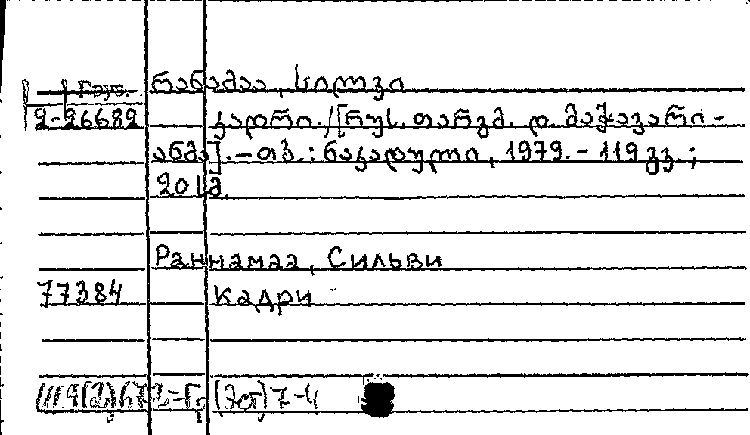 Груз. რანამაა, სილვი
2-26682 კადრი. /[რუს. თარგმ. დ. მაჭავარი-
ანმა]. — თბ. : ნაკადული, 1979. - 119 გვ. ;
20 სმ.
Раннамаа, Сильви
77384 Кадри